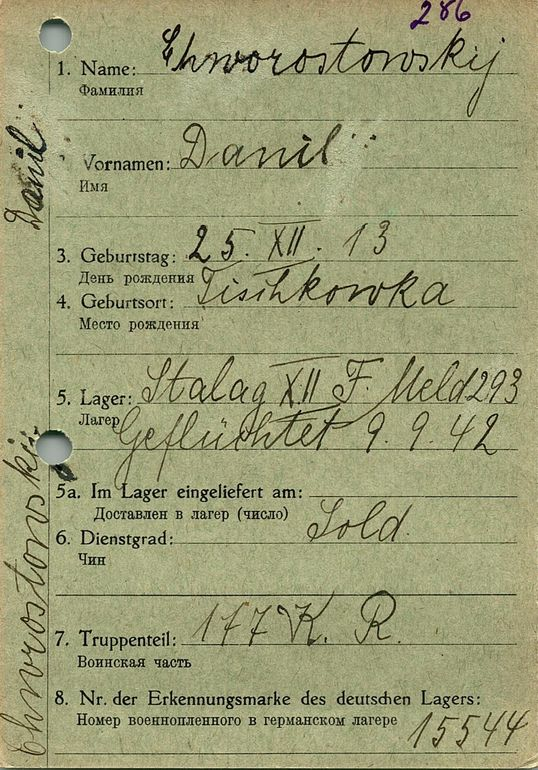 286
1. Name: Chworostowskij
Фамилия
Vornamen: Danil
Имя
3. Geburtstag: 25. XII. 13
День рождения
4. Geburtsort: Tischkowka
Место рождения
5. Lager: Stalag XII F. Meld 293
Лагер Geflüchtet 9. 9. 42
5a. Im Lager eingeliefert am:
Доставлен в лагер (число)
6. Dienstgrad: Sold.
Чин
7. Truppenteil: 177 K. R.
Воинская часть
8. Nr. der Erkennungsmarke des deutschen Lagers:
Номер военнопленного в германском лагере 15544
Chworostowskij Danil